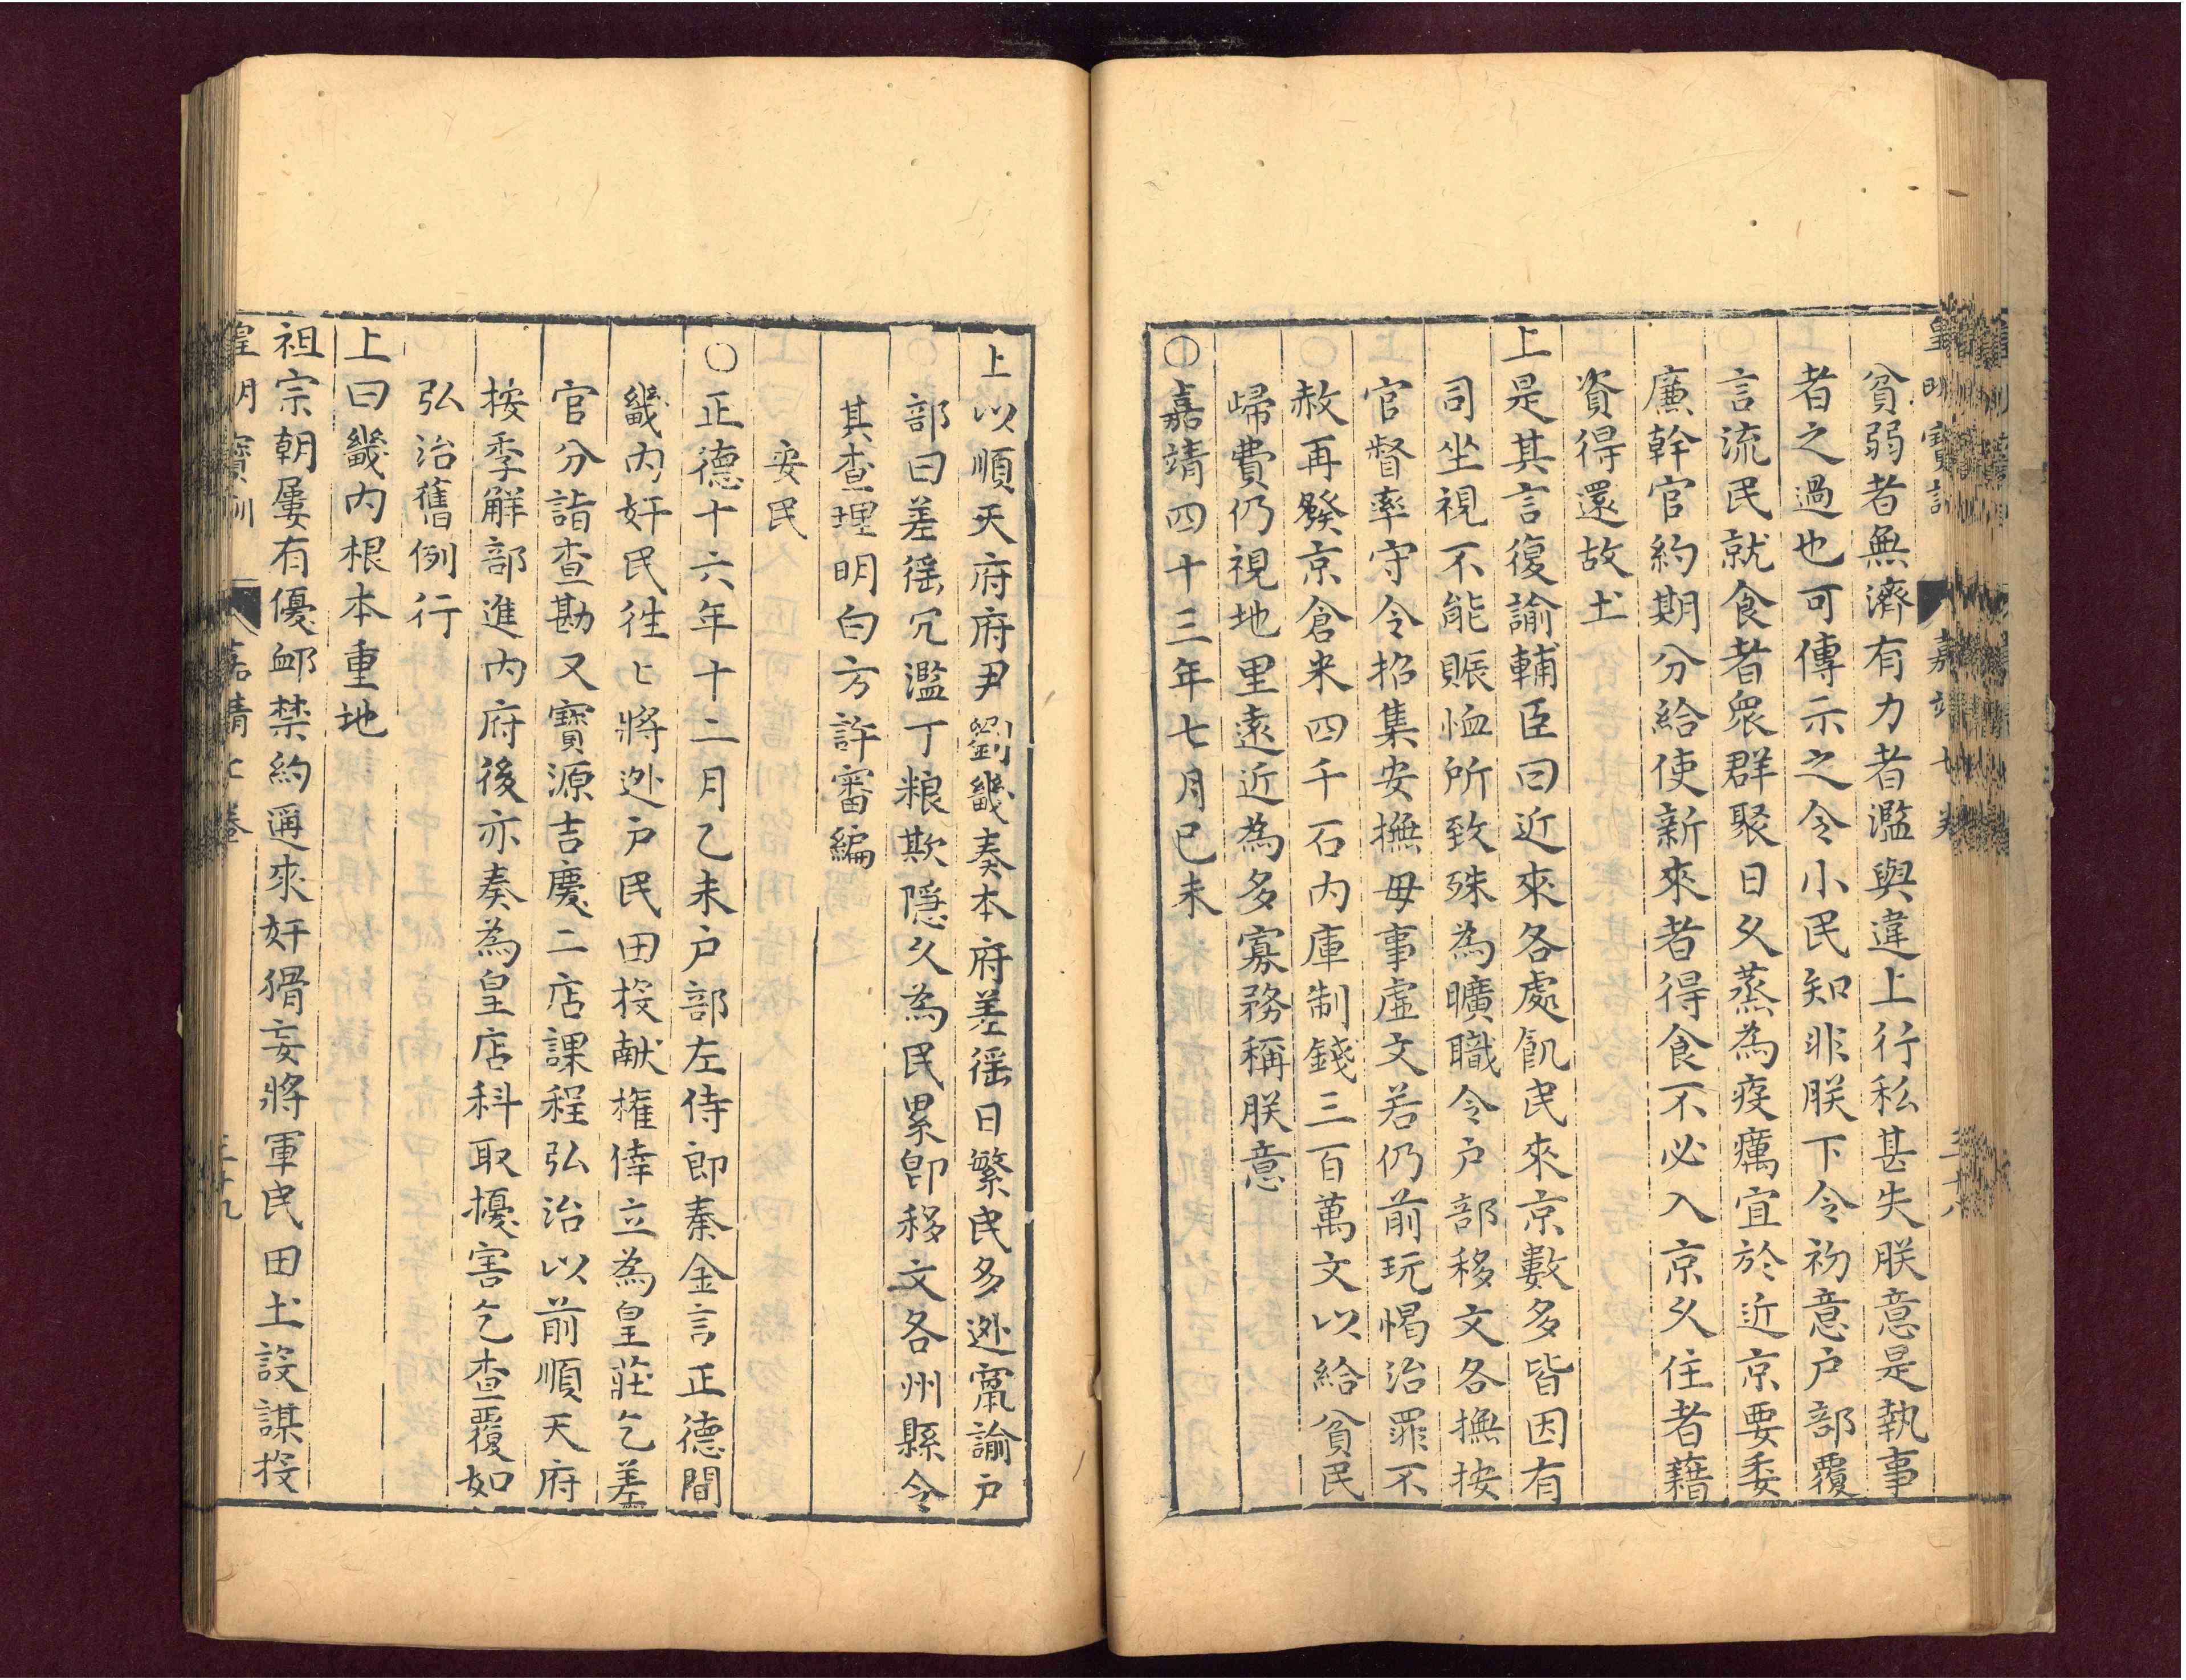 皇明寶訓 嘉靖七卷 三十八
貧弱者無濟有力者濫與違上行私甚失朕意是執事
者之過也可傳示之令小民知非朕下令初意户部覆
言流民就食者衆群聚日久蒸為疫癘宜於近京要委
廉幹官約期分給使新來者得食不必入京久住者藉
資得還故土
上是其言復諭輔臣曰近來各處飢民來京數多皆因有
司坐視不能賑恤所致殊為曠職令户部移文各撫按
官督率守令招集安撫毋事虛文若仍前玩愒治罪不
赦再發京倉米四千石内庫制錢三百萬文以給貧民
歸費仍視地里遠近為多寡務稱朕意
○嘉靖四十三年七月己未
上以順天府府尹劉畿奏本府差徭日繁民多逃竄諭户
部曰差徭冗濫丁粮欺隱久為民累卽移文各州縣令
其查理明白方許審編
安民
○正德十六年十二月乙未户部左侍郎秦金言正德間
畿内奸民徃匕將逃户民田投献權倖立為皇莊乞差
官分詣查勘又寶源吉慶二店課程弘治以前順天府
按季解部進内府後亦奏為皇店科取擾害乞查覆如
弘治舊例行
上曰畿内根本重地
祖宗朝屢有優邺禁約邇來奸猾妄將軍民田土設謀投
皇明寶訓 嘉靖七卷 三十九